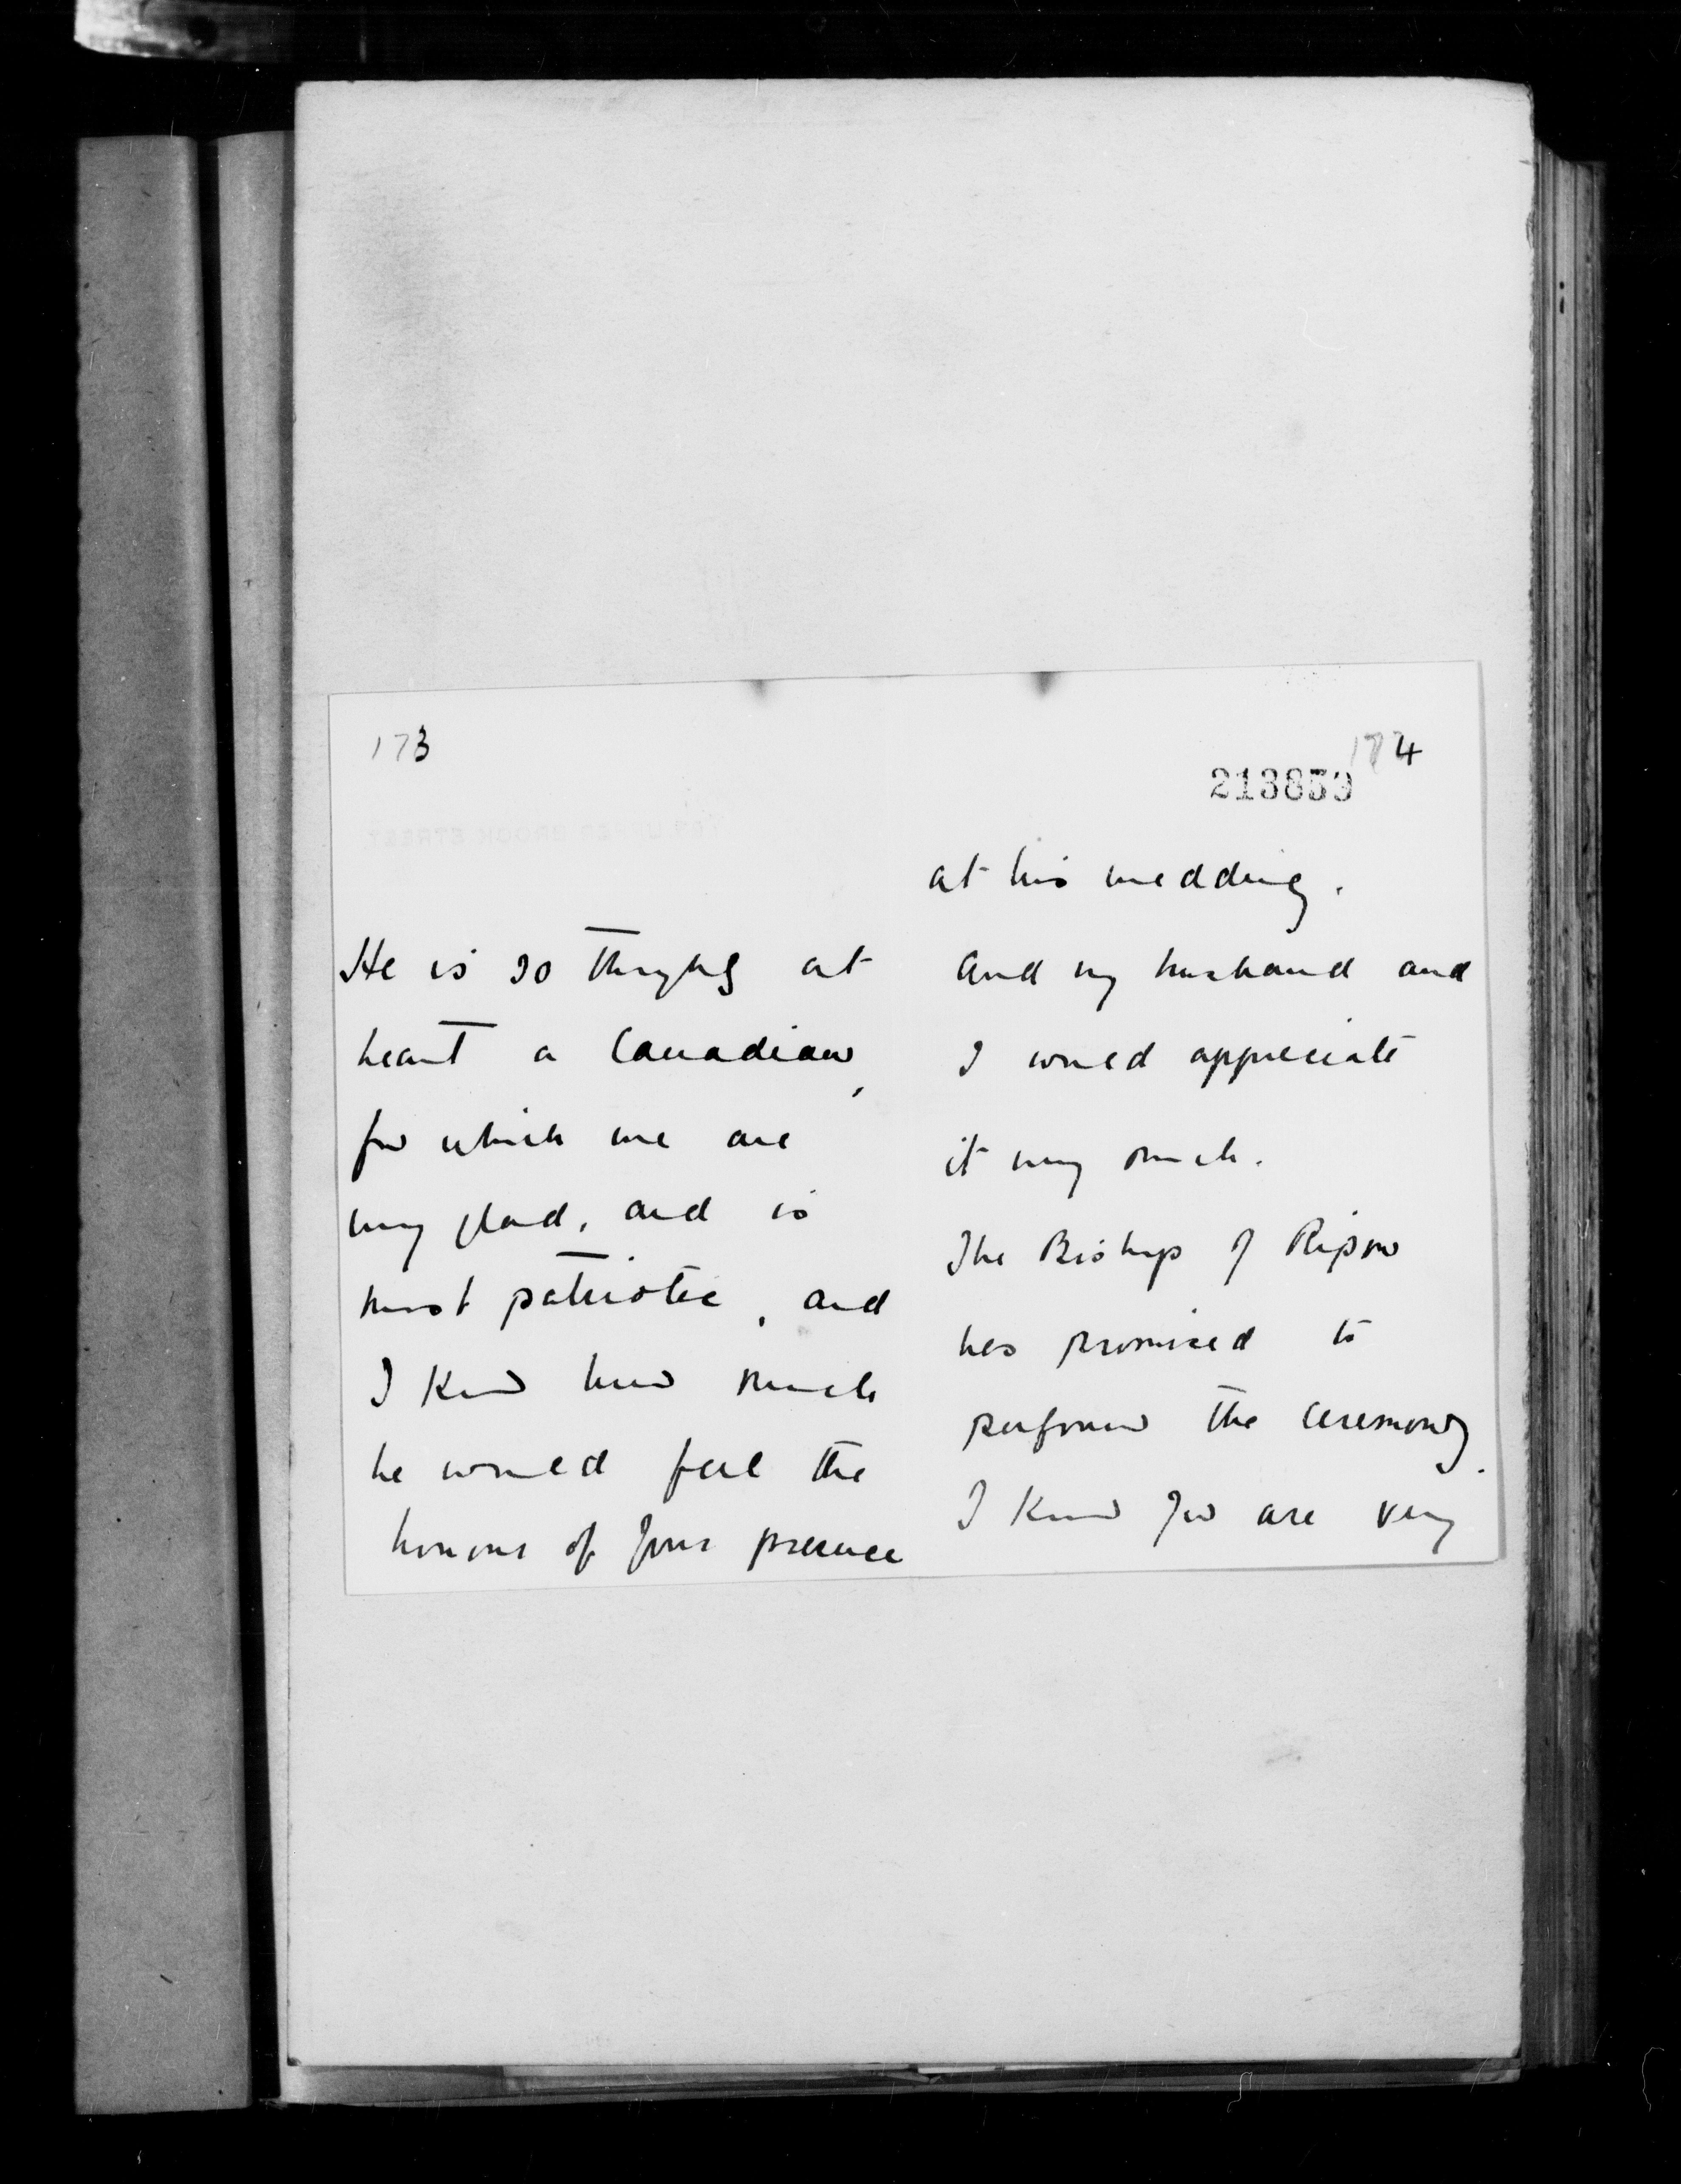 173
He is so thoroughly at
heart a Canadian,
for which we are
very glad, and is
most patriotic, and
I know how much
he would feel the
honour of your presence
174
213859
at his wedding.
And my husband and
I would appreciate
it very much.
The Bishop of Ripon
has promised to
perform the ceremony.
I know you are very